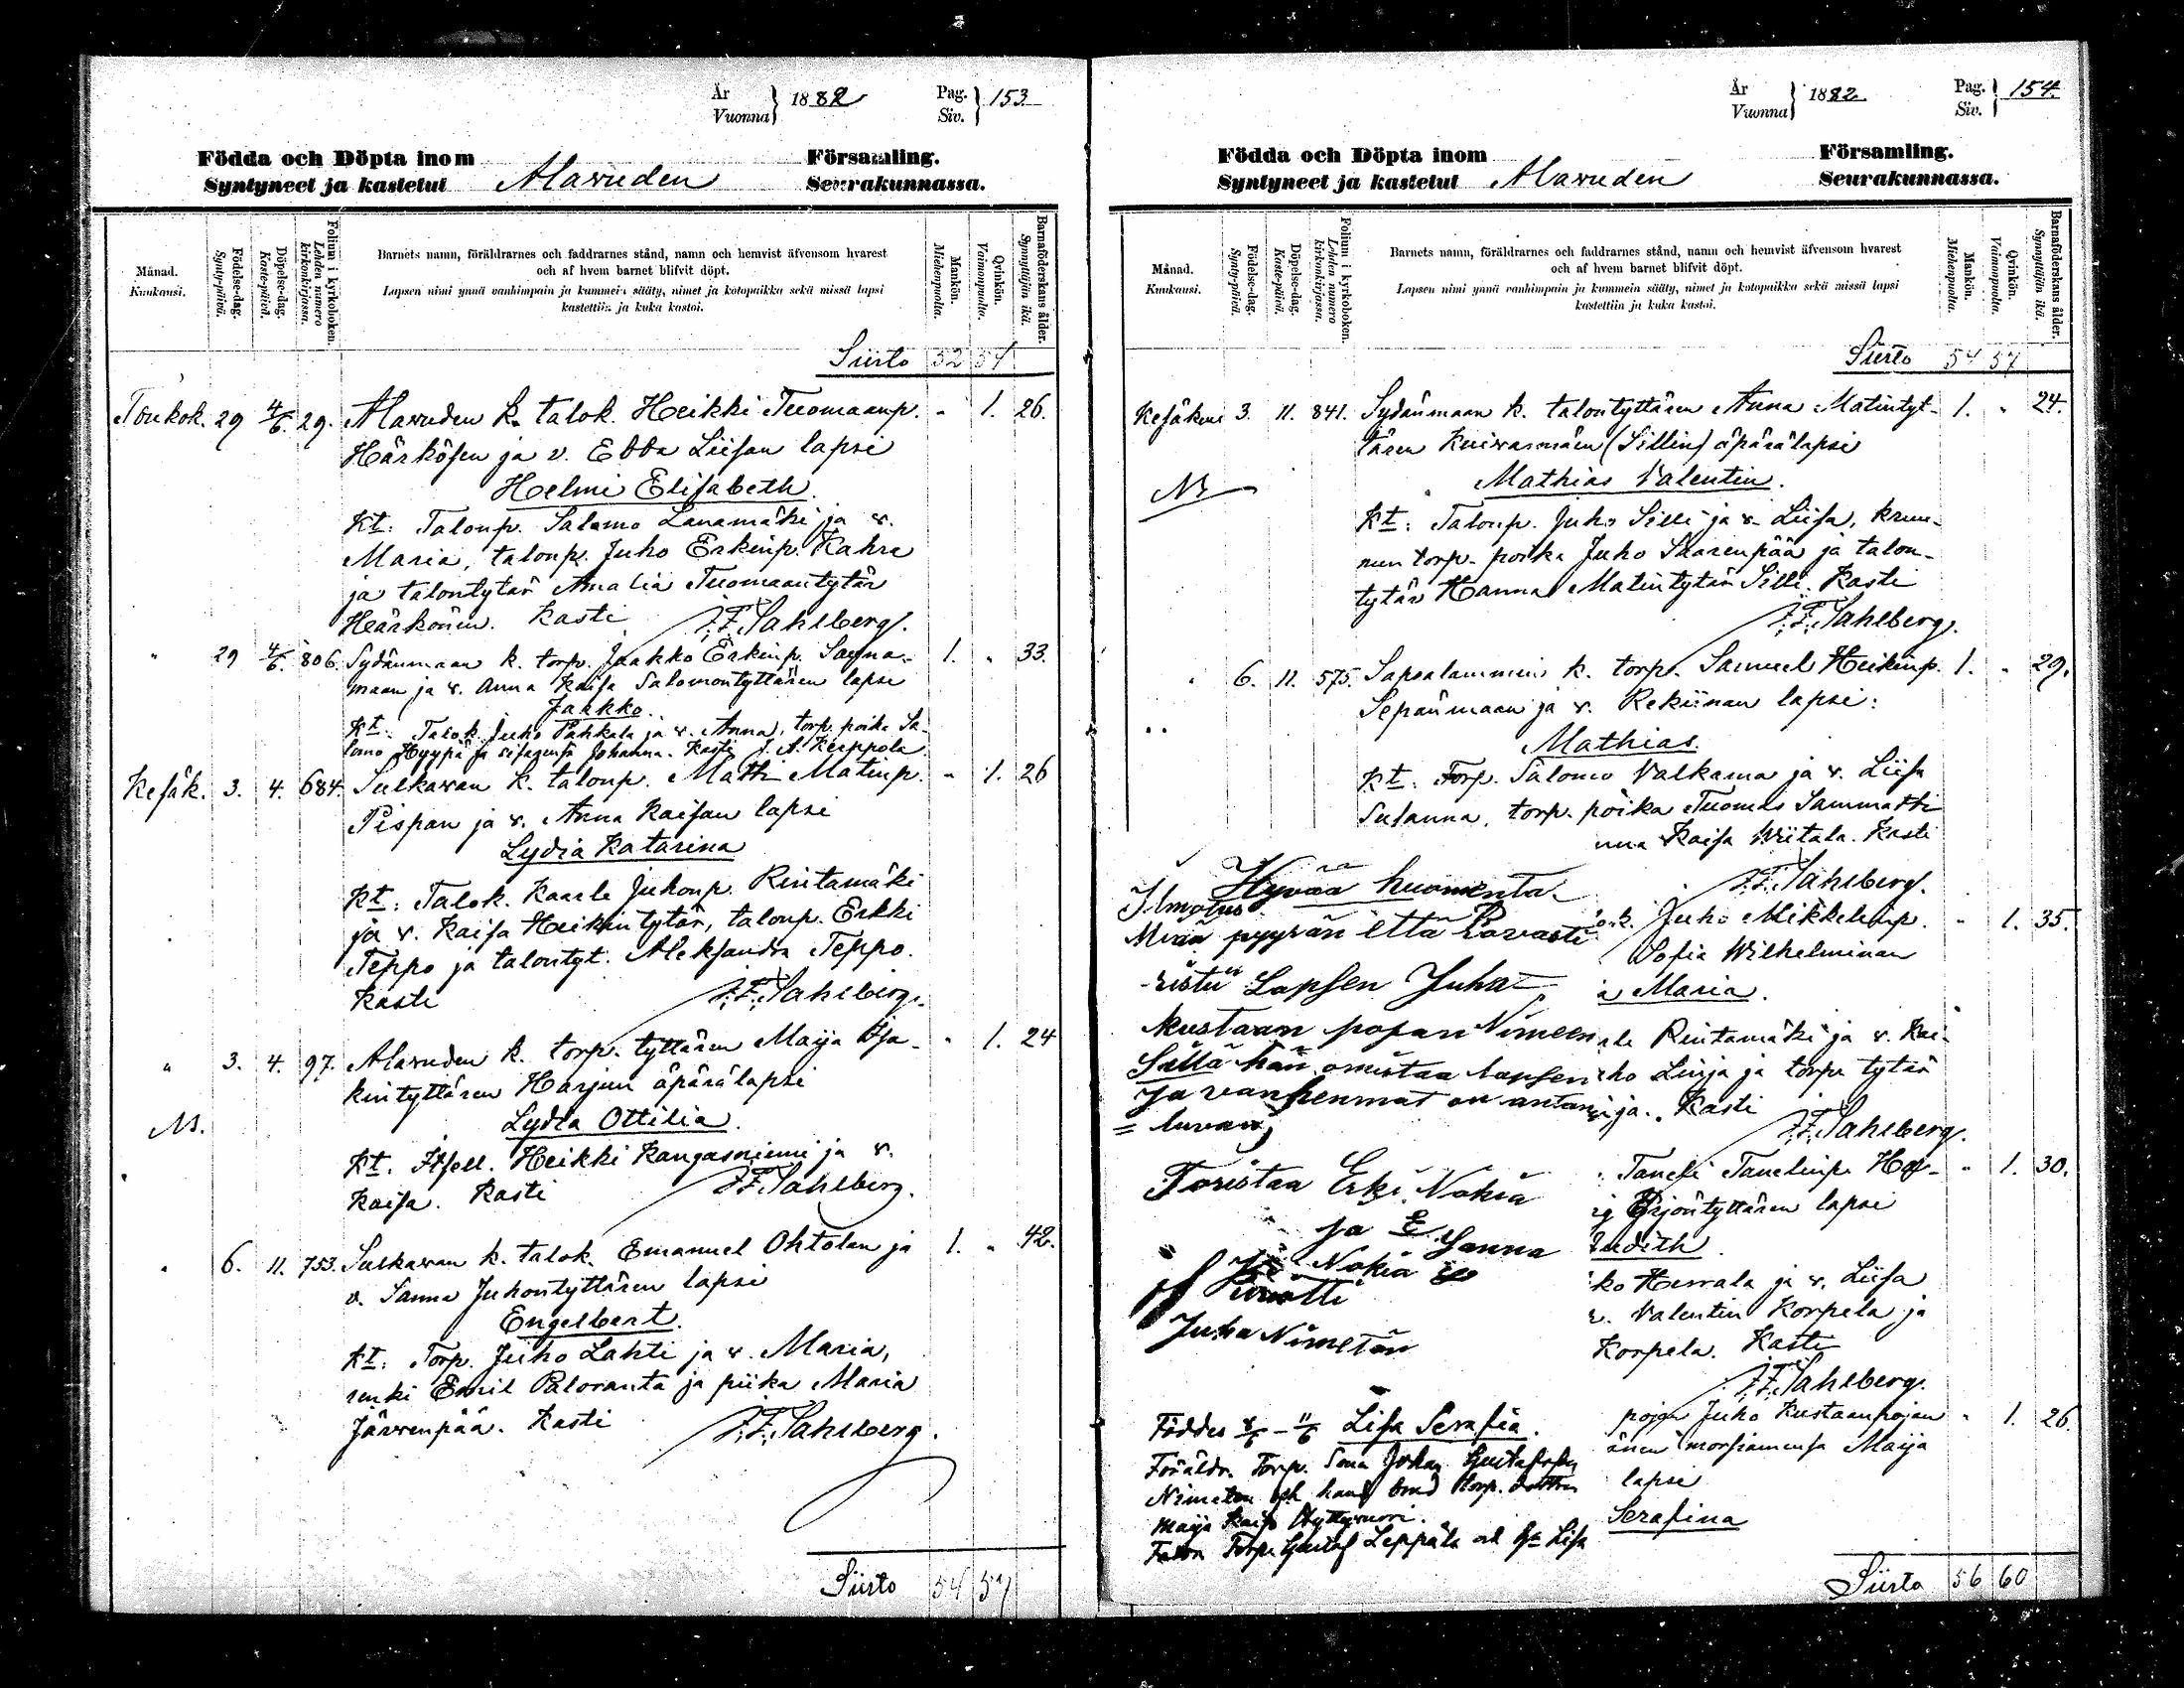 År
Vuonna } 1882 Pag.
Siv. } 153
Födda och Döpta inom Församling.
Syntyneet ja kastetut Alavuden Seurakunnassa.
Månad.
Kuukausi.
Födelse-dag.
Syntypäivä.
Döpelse-dag.
Kaste-päivä.
Folium i kyrkoboken.
Lehden numero
kirkonkirjassa.
Barnets namn, föräldrarnes och faddrarnes stånd, namn och hemvist äfvensom hvarest
och af hvem barnet blifvit döpt.
Lapsen nimi ynnä vanhimpain ja kummein sääty, nimet ja kotopaikka sekä missä lapsi
kastettiin ja kuka kastoi.
Mankön.
Miehenpuolta.
Qvinkön.
Vaimonpuolta.
Barnaföderskans ålder.
Synnyttäjän ikä.
Siirto 52 54
Toukok. 29 4/6. 29. Alavuden k. talok. Heikki Tuomaanp. - 1. 26.
Härkösen ja v. Ebba Liisan lapsi
Helmi Elisabeth.
Kt: Taloup. Salomo Lanamäki ja v.
Maria, taloup. Juho Erkinp. Kahra
ja talontytär Amalia Tuomaantytär
Häärkönen. Kasti J.F. Sahlberg.
" 29 4/6. 806. Sydänmaan k. torp. Jaakko Erkinp. Sayna- 1. " 33.
maan ja v. Anna Kaisa Salomontyttären lapsi
Jaakko.
Kt: Talok. Juho Pahkala ja v. Anna, torp. poika Sa-
lomo Hyypiä ja Johanna. Kasti J. A. Kerppola.
Kesäk. 3. 4. 684. Sulkavan k. taloup. Matti Matinp. - 1. 26
Pispan ja v. Anna Kaisan lapsi
Lydia Katarina
Kt: Talok. Kaarle Juhonp. Rintamäki
ja v. Kaisa Heikintytär, taloup. Erkki
Teppo ja talontyt. Aleksandra Teppo.
Kasti J.F. Sahlberg.
" 3. 4. 97. Alavuden k. torp. tyttären Maija Isa- " 1. 24
kintyttären Harjun äpärälapsi
Lydia Ottilia.
Kt. Itsell. Heikki Kangasniemi ja v.
Kaisa. Kasti J.F. Sahlberg.
" 6. 11. 753. Sulkavan k. talok. Emanuel Ohtolan ja 1. " 42.
v. Sanna Juhontyttären lapsi
Engelbert.
Kt: Torp. Juho Lahti ja v. Maria,
renki Emil Paloranta ja piika Maria
Järvenpää. Kasti J.F. Sahlberg.
Siirto 54 57
År
Vuonna } 1882 Pag.
Siv. } 154.
Födda och Döpta inom Församling.
Syntyneet ja kastetut Alavuden Seurakunnassa.
Månad.
Kuukausi.
Födelse-dag.
Syntypäivä.
Döpelse-dag.
Kaste-päivä.
Folium i kyrkoboken.
Lehden numero
kirkonkirjassa.
Barnets namn, föräldrarnes och faddrarnes stånd, namn och hemvist äfvensom hvarest
och af hvem barnet blifvit döpt.
Lapsen nimi ynnä vanhimpain ja kummein sääty, nimet ja kotopaikka sekä missä lapsi
kastettiin ja kuka kastoi.
Mankön.
Miehenpuolta.
Qvinkön.
Vaimonpuolta.
Barnaföderskans ålder.
Synnyttäjän ikä.
Siirto 54 57
Kesäkuu 3. 11. 841. Sydänmaan k. talontyttären Anna Matintyt- 1. " 24.
tären Kuivasmäen (Sillin) äpärälapsi
Mathias Valentin.
Kt: Taloup. Juho Silli ja v. Liisa, kruu-
nun torp. poika Juho Saarenpää ja talon-
tytär Hanna Matintytär Silli. Kasti
J.F. Sahlberg.
" 6. 11. 575. Sapsalammin k. torp. Samuel Heikinp. 1. " 29.
Sepänmaan ja v. Rekiinan lapsi:
Mathias.
Kt: Torp. Salomo Valkama ja v. Liisa
Susanna, torp. poika Tuomas Sammatti
nna Kaisa Wiitala. Kasti
J.F. Sahlberg.
Juho Mikkelinp. - 1. 35.
Sofia Wilhelminan
a Maria.
Rintamäki ja v. Kai-
ho Linja ja torp. tytär
ja. Kasti
J.F. Sahlberg.
Taneli Tanelinp. Har- " 1. 30.
Yrjöntyttären lapsi
Judith
ko Herrala ja v. Liisa
v. Valentin Korpela ja
Korpela. Kasti
J.F. Sahlberg.
pojan Juho Kustaanpojan " 1. 26.
änen morsiamensa Maija
lapsi
Serafina
Hyvää huomenta
Ilmotus
Minä pyyrän että Rovasti
ristii Lapsen Juha
Kustaan pojan Nimeen
Sillä hän omistaa lapsen
ja vanhenmat on antan
= luvan
Toristaa Erki Nokia
ja Sanna
Nokia
Juha Nimetön
Föddes 8/6 - 11/6 Lisa Serafia.
Föräldr. Torp. Son Johan Gustafson
Nimeton och hans brud torp. dotter
Maija Kaisa Myllyvuori.
Torp. Gustaf Leppälä och h. Lisa
Siirto 56 60